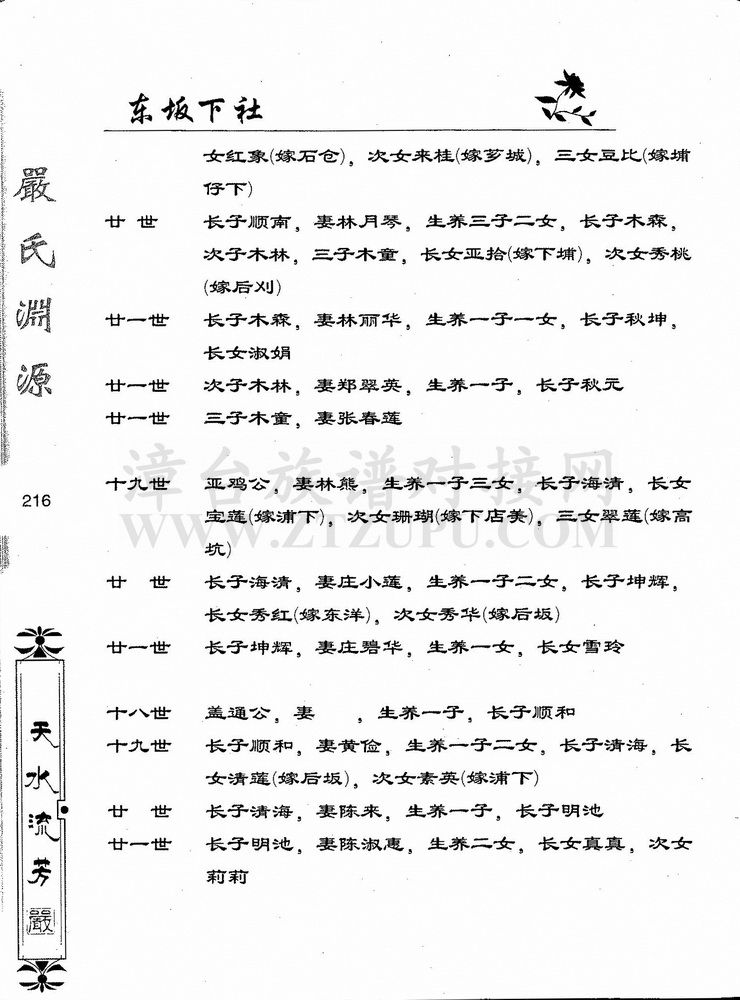 东坂下社
嚴氏淵源
216
天水流芳
嚴
女红象(嫁石仓)，次女来桂(嫁芗城)，三女豆比(嫁埔
仔下)
廿世 长子顺南，妻林月琴，生养三子二女，长子木森，
次子木林，三子木童，长女亚拾(嫁下埔)，次女秀桃
(嫁后刈)
廿一世 长子木森，妻林丽华，生养一子一女，长子秋坤，
长女淑娟
廿一世 次子木林，妻郑翠英，生养一子，长子秋元
廿一世 三子木童，妻张春莲
十九世 亚鸡公，妻林熊，生养一子三女，长子海清，长女
宝莲(嫁浦下)，次女珊瑚(嫁下店美)，三女翠莲(嫁高
坑)
廿世 长子海清，妻庄小莲，生养一子二女，长子坤辉，
长女秀红(嫁东洋)，次女秀华(嫁后坂)
廿一世 长子坤辉，妻庄碧华，生养一女，长女雪玲
十八世 盖通公，妻　　，生养一子，长子顺和
十九世 长子顺和，妻黄俭，生养一子二女，长子清海，长
女清莲(嫁后坂)，次女素英(嫁浦下)
廿世 长子清海，妻陈来，生养一子，长子明池
廿一世 长子明池，妻陈淑惠，生养二女，长女真真，次女
莉莉
漳台族谱对接网
WWW.ZTZUPU.COM